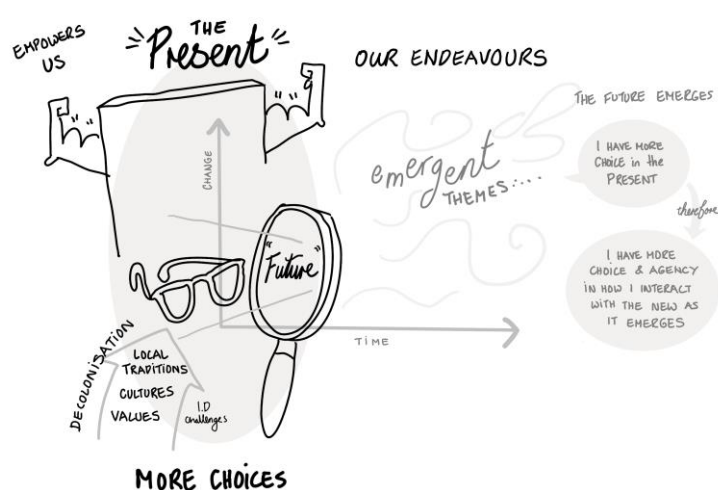 EMPOWERS
US
"THE
Present"
OUR ENDEAVOURS
THE FUTURE EMERGES
CHANGE
emergent
THEMES:....
I HAVE MORE
CHOICE in the
PRESENT
therefore
"Future"
I HAVE MORE
CHOICE & AGENCY
IN HOW I INTERACT
WITH THE NEW AS
IT EMERGES
TIME
DECOLONISATION
LOCAL
TRADITIONS
CULTURES
VALUES
I.D
challenges
MORE CHOICES